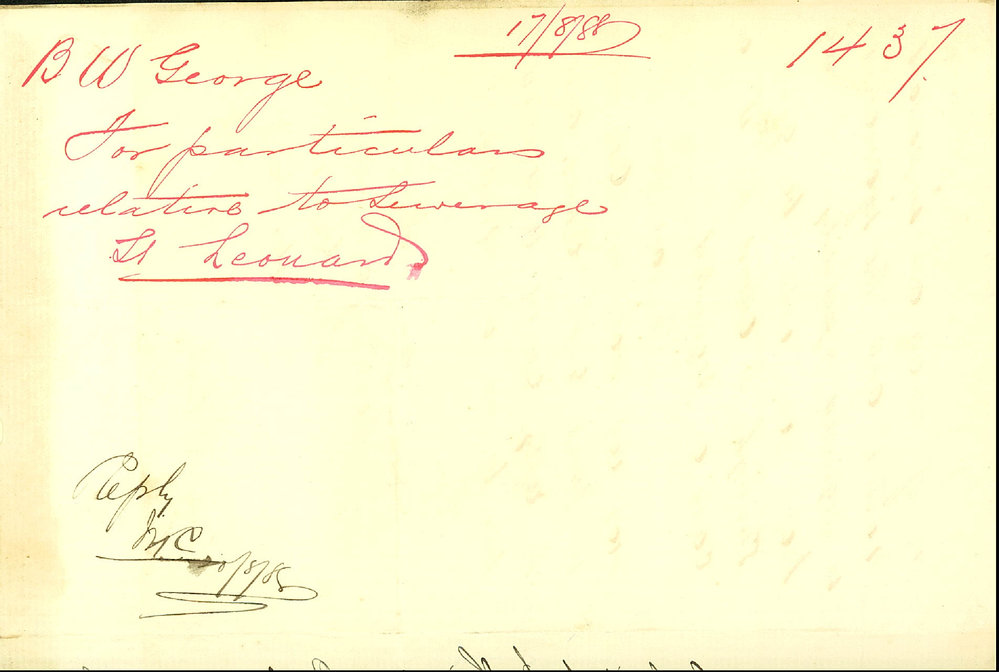 17/8/88
1437.
B W George
For particulars
relative to Sewerage
St Leonards
Reply
20/8/88